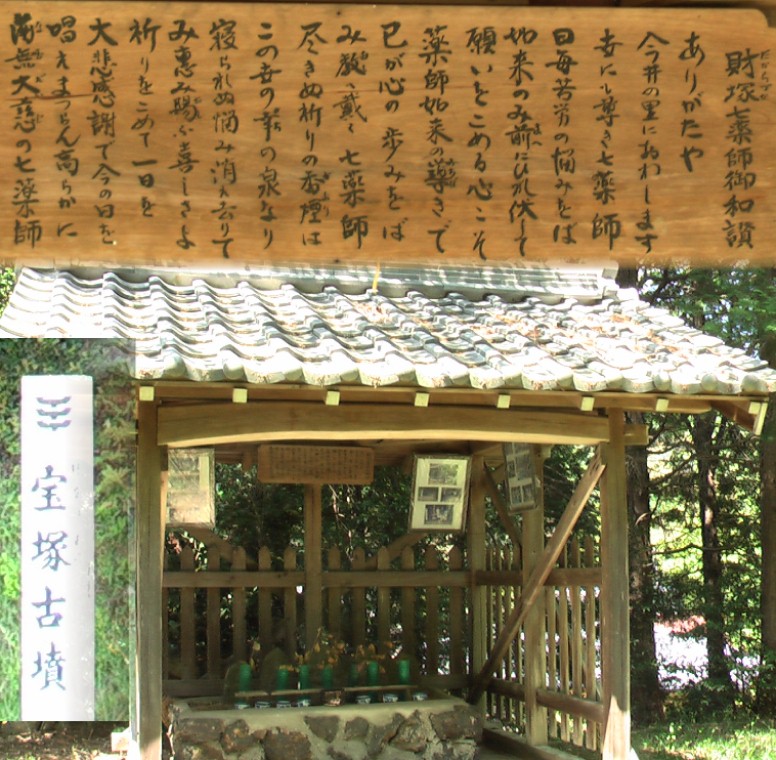 財塚七薬師御和讃
ありがたや
今井の里におわします
世にも尊き七薬師
日毎苦労の悩みをば
如来のみ前にひれ伏して
願いをこめる心こそ
薬師如来の導きで
己が心の歩みをば
み教へ戴く七薬師
尽きぬ祈りの香煙は
この世の華の泉なり
寝られぬ悩み消え去りて
み恵み賜ふ喜しさよ
祈りをこめて一日を
大悲感謝で今の日を
唱えまつらん高らかに
南無大慈の七薬師
宝塚古墳